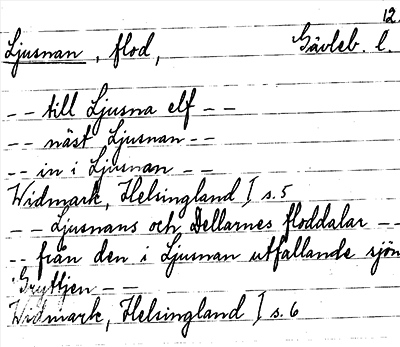 12.
Ljusnan, flod, Gävleb. l.
- - till Ljusna elf - -
- - näst Ljusnan - -
- - in i Ljusnan - -
Widmark, Helsingland I s. 5
- - Ljusnans och Dellarnes floddalar - -
- - från den i Ljusnan utfallande sjön
Gryttjen - -
Widmark, Helsingland I s. 6